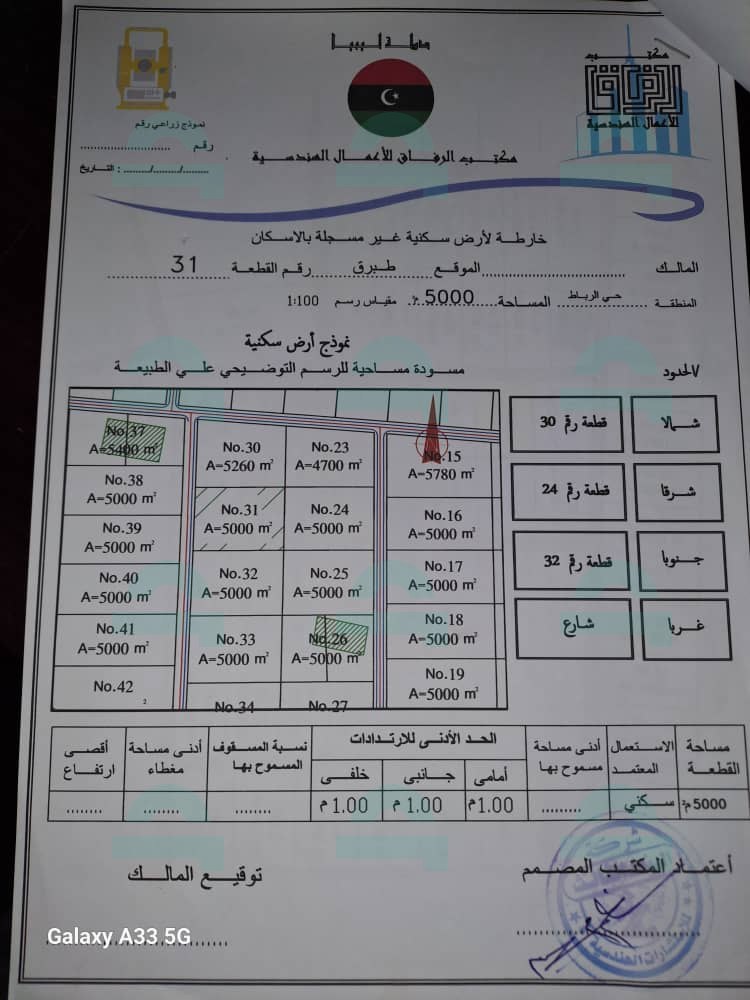 دولة ليبيا
مكتب
الرفاق
للأعمال الهندسية
نموذج زراعي رقم
رقم ........................
التاريخ : ........./........./.........
مكتب الرفاق للأعمال الهندسية
خارطة لأرض سكنية غير مسجلة بالاسكان
المالك .............................. الموقع طبرق رقم القطعة 31
المنطقة حي الرباط المساحة 5000 م² مقياس رسم 1:100
نموذج أرض سكنية
الحدود/ مسودة مساحية للرسم التوضيحي علي الطبيعة
شمالا قطعة رقم 30
شرقا قطعة رقم 24
جنوبا قطعة رقم 32
غربا شارع
No.37
A=5400 m²
No.38
A=5000 m²
No.39
A=5000 m²
No.40
A=5000 m²
No.41
A=5000 m²
No.42
2
No.30
A=5260 m²
No.31
A=5000 m²
No.32
A=5000 m²
No.33
A=5000 m²
No.34
No.23
A=4700 m²
No.24
A=5000 m²
No.25
A=5000 m²
No.26
A=5000 m²
No.27
No.15
A=5780 m²
No.16
A=5000 m²
No.17
A=5000 m²
No.18
A=5000 m²
No.19
A=5000 m²
مساحة القطعة
الاستعمال المعتمد
أدنى مساحة مسموح بها
الحد الأدنى للارتدادات
أمامى جانبى خلفى
نسبة المسقوف المسموح بها
أدنى مساحة مغطاء
أقصى ارتفاع
5000م² سكني ......... 1.00م 1.00 م 1.00 م ........ ........ ........
أعتماد المكتب المصمم
توقيع المالك
Galaxy A33 5G